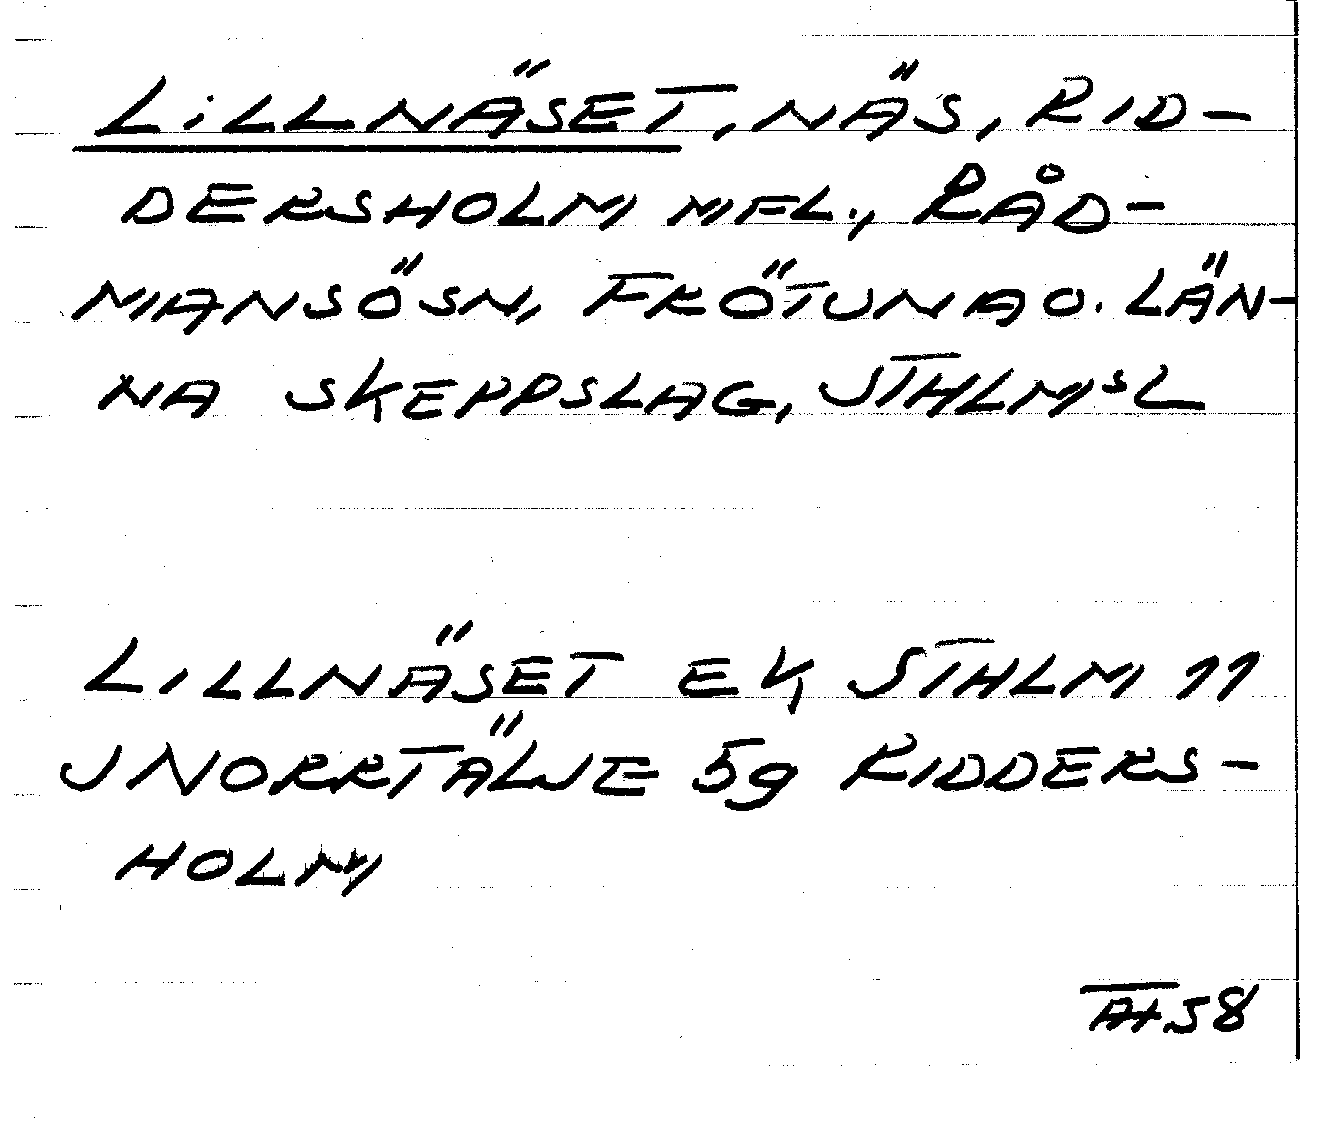 LILLNÄSET, NÄS, RID-
DERSHOLM MFL., RÅD-
MANSÖSN, FRÖTUNA O. LÄN-
NA SKEPPSLAG, STHLMSL
LILLNÄSET EK STHLM 11
J NORRTÄLJE 59 RIDDERS-
HOLM
58